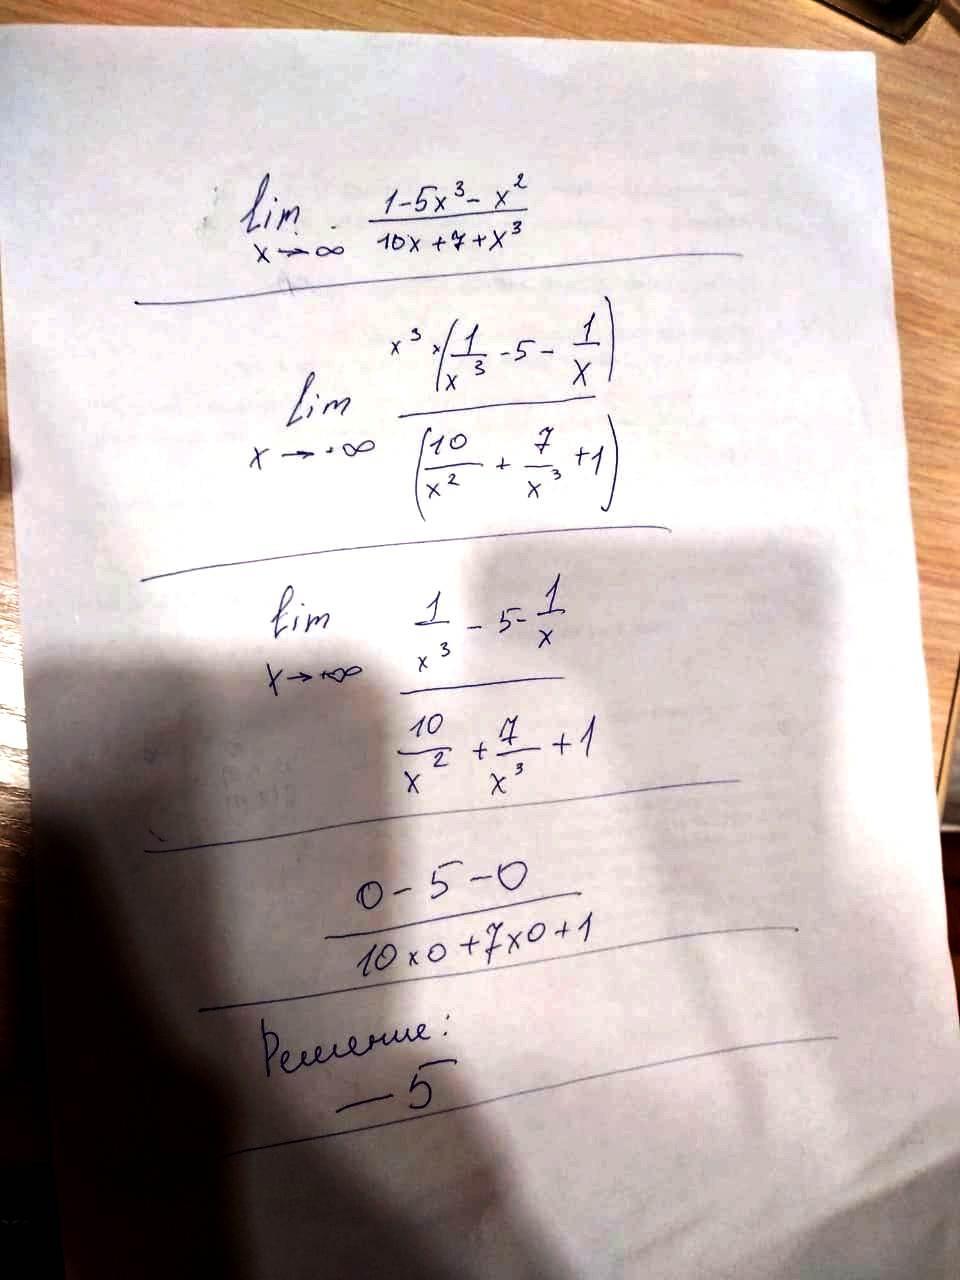 lim 1-5x³-x²
x→∞ 10x+7+x³
x³×(1/x³-5-1/x)
lim
x→∞ (10/x²+7/x³+1)
lim 1/x³-5-1/x
x→+∞
10/x²+7/x³+1
0-5-0
10×0+7×0+1
Решение:
-5